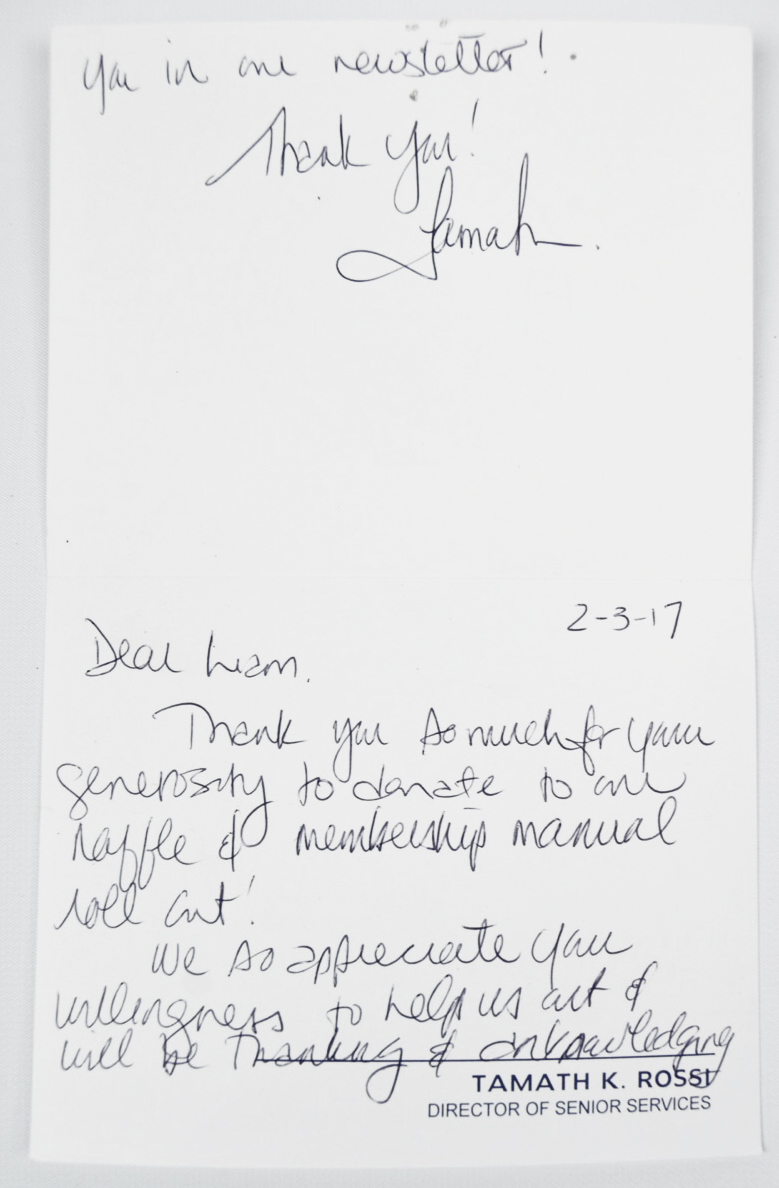 2-3-17
Dear Liam,
Thank you so much for your
generosity to donate to our
raffle & membership manual
roll out!
We so appreciate your
willingness to help us out &
will be thanking & acknowledging
TAMATH K. ROSSI
DIRECTOR OF SENIOR SERVICES
you in our newsletter!
Thank you!
Tamath